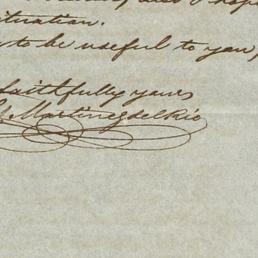 ituation.
to be useful to you,
faithfully yours
Martinez del Rio